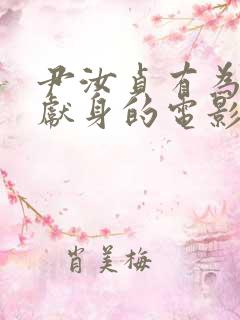 尹汝貞有為
獻身的電影
肖美梅